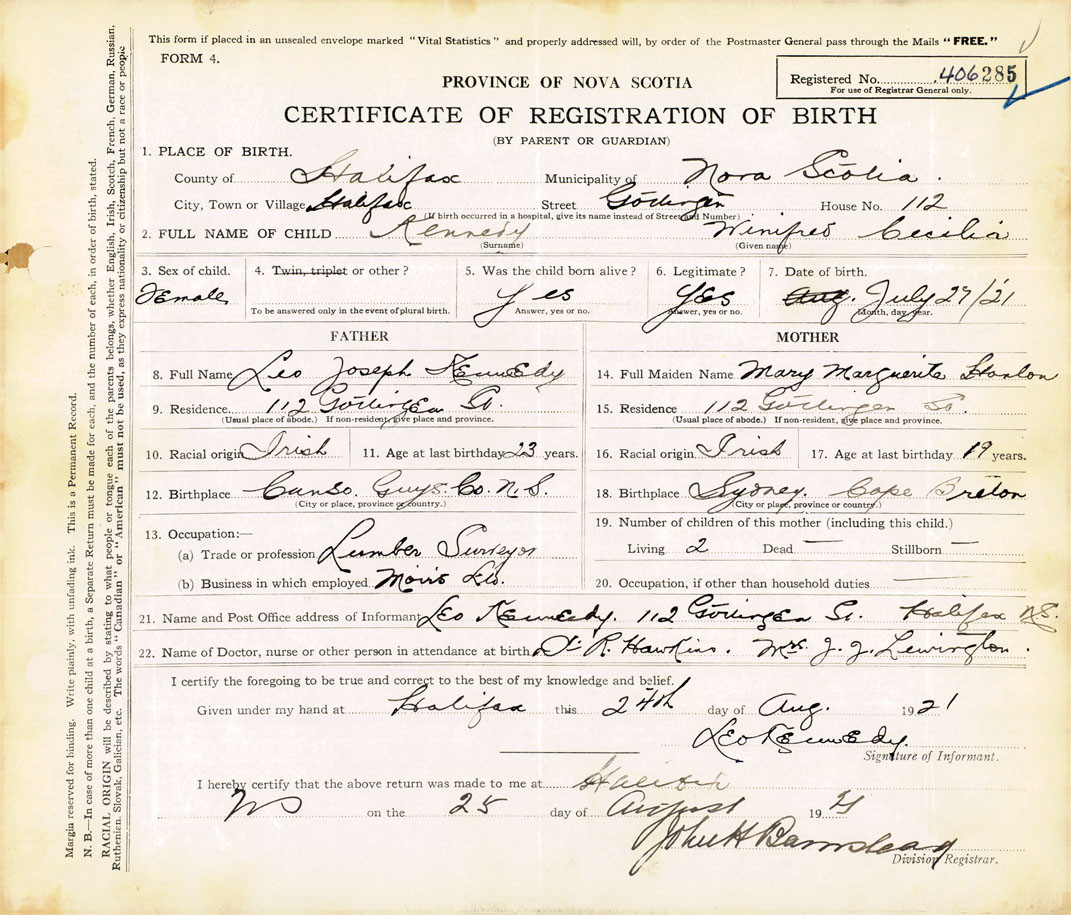 This form if placed in an unsealed envelope marked "Vital Statistics" and properly addressed will, by order of the Postmaster General pass through the Mails "FREE."
FORM 4.
Registered No. 406285
For use of Registrar General only.
PROVINCE OF NOVA SCOTIA
CERTIFICATE OF REGISTRATION OF BIRTH
(BY PARENT OR GUARDIAN)
1. PLACE OF BIRTH.
County of Halifax Municipality of Nova Scotia.
City, Town or Village Halifax Street Gottingen House No. 112
(If birth occurred in a hospital, give its name instead of Street and Number)
2. FULL NAME OF CHILD Kennedy Winifred Cecilia
(Surname) (Given name)
3. Sex of child. 4. Twin, triplet or other? 5. Was the child born alive? 6. Legitimate? 7. Date of birth.
Female Yes Yes Aug. July 27/'21
To be answered only in the event of plural birth. Answer, yes or no. Answer, yes or no. Month, day, year.
FATHER MOTHER
8. Full Name Leo Joseph Kennedy 14. Full Maiden Name Mary Marguerite Hanlon
9. Residence 112 Gottingen St. 15. Residence 112 Gottingen St.
(Usual place of abode.) If non-resident, give place and province. (Usual place of abode.) If non-resident, give place and province.
10. Racial origin Irish 11. Age at last birthday 23 years. 16. Racial origin Irish 17. Age at last birthday 19 years.
12. Birthplace Canso. Guys. Co. N.S. 18. Birthplace Sydney. Cape Breton
(City or place, province or country.) (City or place, province or country.)
13. Occupation:— 19. Number of children of this mother (including this child.)
(a) Trade or profession Lumber Surveyor Living 2 Dead — Stillborn —
(b) Business in which employed Moirs Ld. 20. Occupation, if other than household duties —
21. Name and Post Office address of Informant Leo Kennedy. 112 Gottingen St. Halifax N.S.
22. Name of Doctor, nurse or other person in attendance at birth Dr. R. Hawkins. Mrs. J. J. Lewington.
I certify the foregoing to be true and correct to the best of my knowledge and belief.
Given under my hand at Halifax this 24th day of Aug. 1921
Leo Kennedy.
Signature of Informant.
I hereby certify that the above return was made to me at Halifax
NS on the 25 day of August 1921
John H Barnstead
Division Registrar.
Margin reserved for binding. Write plainly, with unfading ink. This is a Permanent Record.
N. B.—In case of more than one child at a birth, a Separate Return must be made for each, and the number of each, in order of birth, stated.
RACIAL ORIGIN will be described by stating to what people or tongue each of the parents belongs, whether English, Irish, Scotch, French, German, Russian,
Ruthenian. Slovak, Galician, etc. The words "Canadian" or "American" must not be used, as they express nationality or citizenship but not a race or people